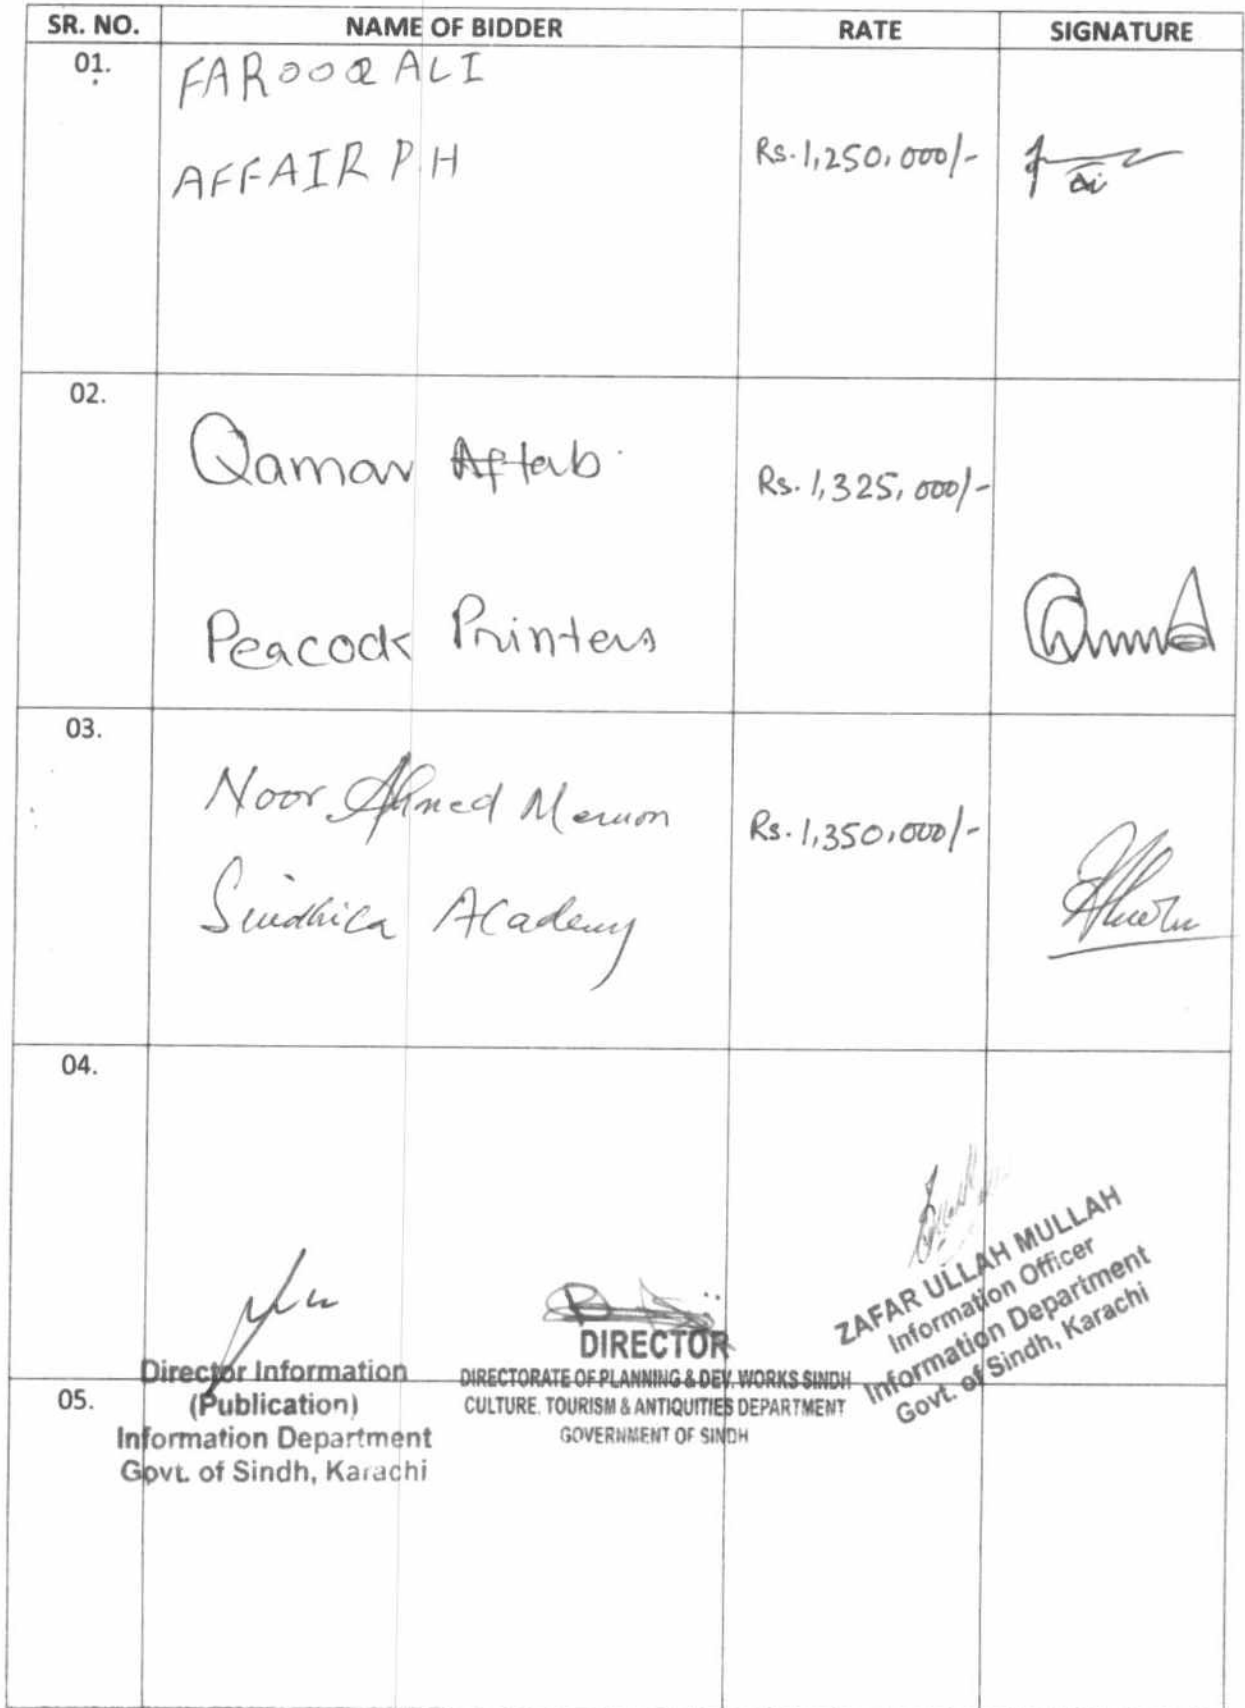 SR. NO. NAME OF BIDDER RATE SIGNATURE
01.
FAROOQ ALI
AFFAIR PH
Rs. 1,250,000/-
02.
Qamar Aftab
Rs. 1,325,000/-
Peacock Printers
03.
Noor Ahmed Memon
Rs. 1,350,000/-
Sindhica Academy
04.
Director Information
(Publication)
Information Department
Govt. of Sindh, Karachi
DIRECTOR
DIRECTORATE OF PLANNING & DEV. WORKS SINDH
CULTURE. TOURISM & ANTIQUITIES DEPARTMENT
GOVERNMENT OF SINDH
ZAFAR ULLAH MULLAH
Information Officer
Information Department
Govt. of Sindh, Karachi
05.